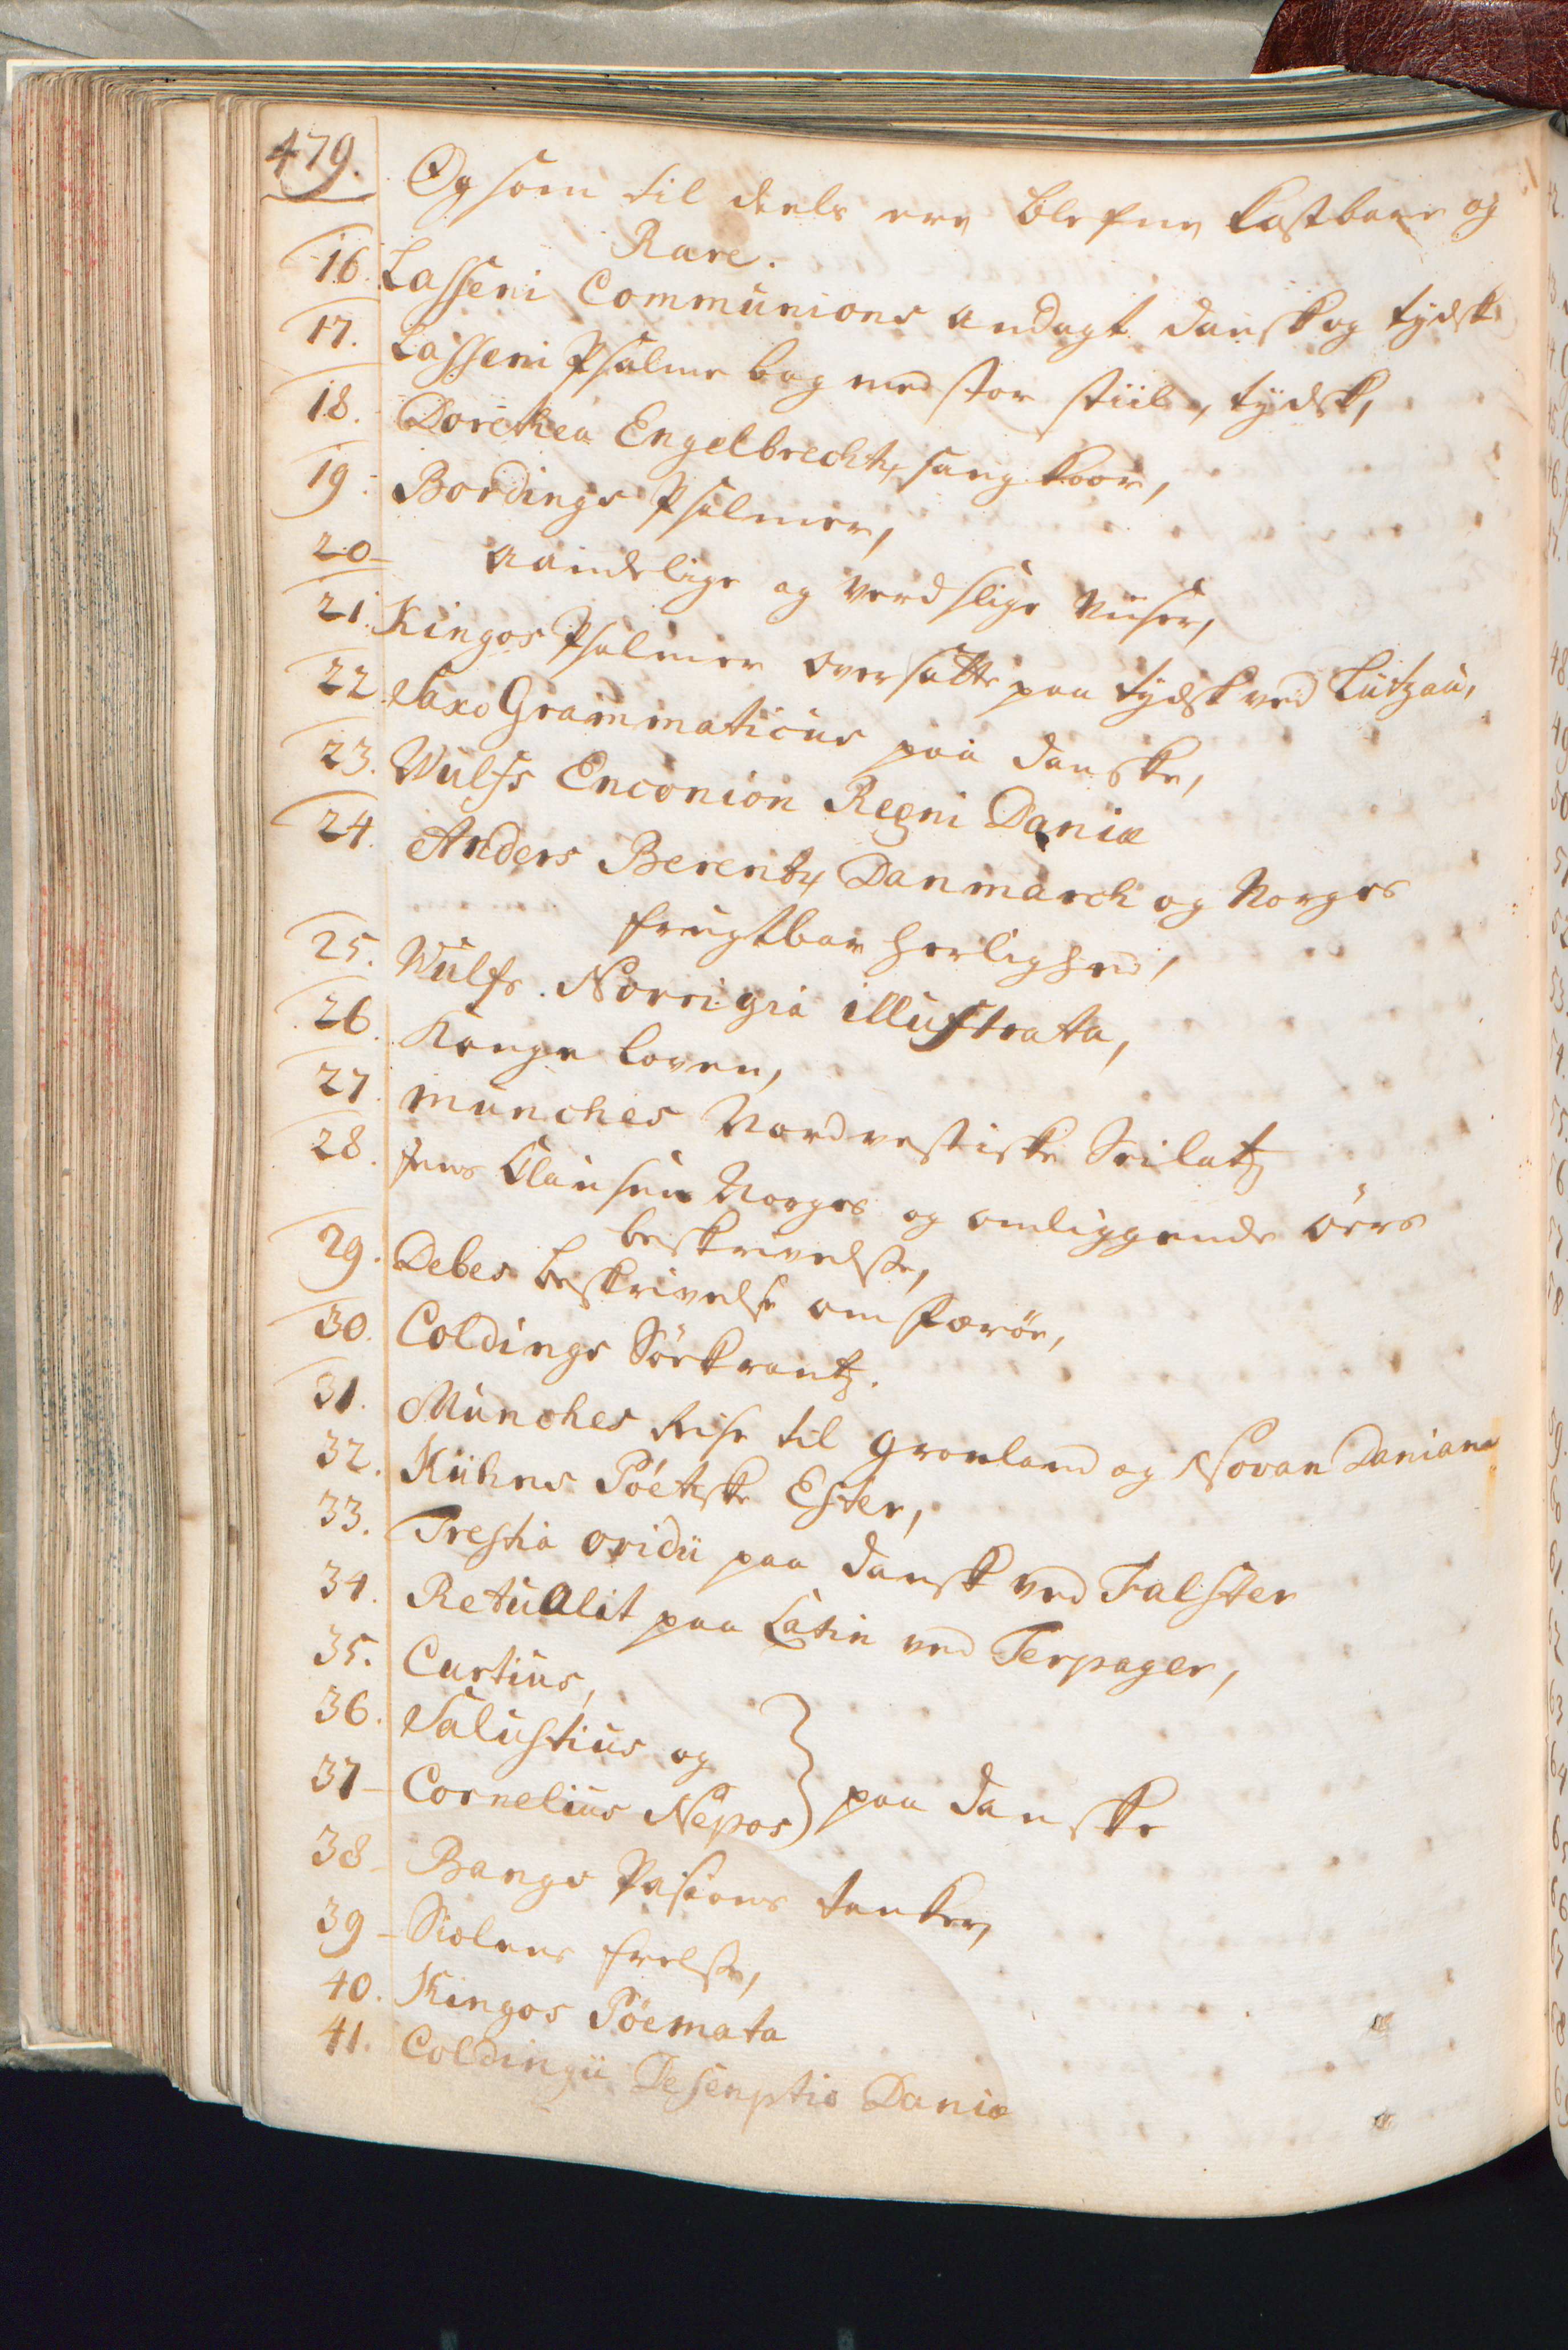 479.
Og som til deels ere blefne kostbare og
Rare.
16. Lasseni Communions andagt dansk og tydsk
17. Lasseni Psalme bog med stor stiil, tydsk,
18. Dorethea Engelbrechtz sang koor,
19. Bordings Psalmer,
20 aandelige og verdslige viiser,
21. Kingos Psalmer oversatte paa tydsk ved Lützau,
22. Saxo Grammaticus paa danske,
23. Wulfs Enconion Regni Daniæ
24. Anders Berentz Danmarck og Norges
frugtbar herlighed,
25. Wulfs. Norrigia illustrata,
26. Konge loven,
27. munches Nordvestiske Seilatz
28. Jens Clausen Norges og omliggende öers
beskrivelse,
29. Debes beskrivelse om Færöe,
30. Coldings Sörkrantz.
31. Munches Reise til Gronland og Novan Daniana
32. Kühns Poétiske Ester,
33. Trestia ovidii paa dansk ved Falster
34. Retualit paa Latin ved Terpager,
35. Curtius,
36. Salustius og
37 Cornelius Nepos } paa danske
38 Bangs Pasions tanker,
39 Siælens frelse,
40. Kingos Poemata
41. Coldingii Descriptio Daniæ